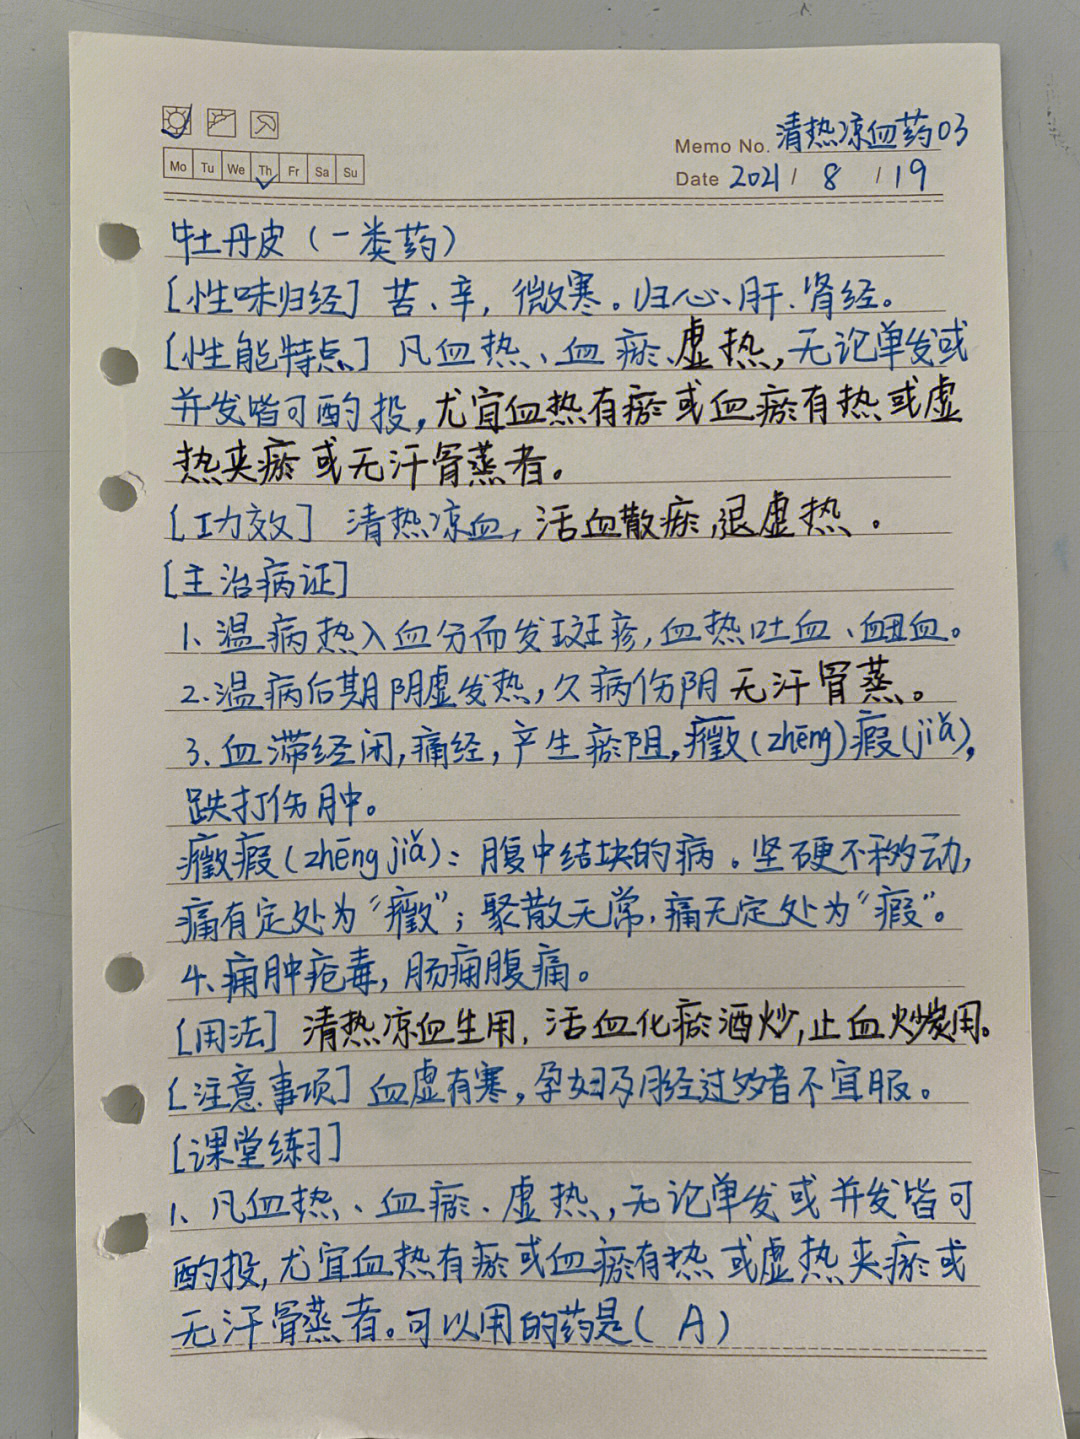 Memo No. 清热凉血药03
Mo Tu We Th Fr Sa Su
Date 2021 / 8 / 19
牡丹皮（一类药）
[性味归经] 苦、辛，微寒。归心、肝、肾经。
[性能特点] 凡血热、血瘀、虚热，无论单发或
并发皆可酌投，尤宜血热有瘀或血瘀有热或虚
热夹瘀或无汗骨蒸者。
[功效] 清热凉血，活血散瘀，退虚热。
[主治病证]
1、温病热入血分而发斑疹，血热吐血、衄血。
2、温病后期阴虚发热，久病伤阴无汗骨蒸。
3、血滞经闭，痛经，产生瘀阻，癥(zhēng)瘕(jiǎ)，
跌打伤肿。
癥瘕(zhēng jiǎ)：腹中结块的病。坚硬不移动，
痛有定处为“癥”；聚散无常，痛无定处为“瘕”。
4、痈肿疮毒，肠痈腹痛。
[用法] 清热凉血生用，活血化瘀酒炒，止血炒炭用。
[注意事项] 血虚有寒，孕妇及月经过多者不宜服。
[课堂练习]
1、凡血热、血瘀、虚热，无论单发或并发皆可
酌投，尤宜血热有瘀或血瘀有热或虚热夹瘀或
无汗骨蒸者。可以用的药是( A )